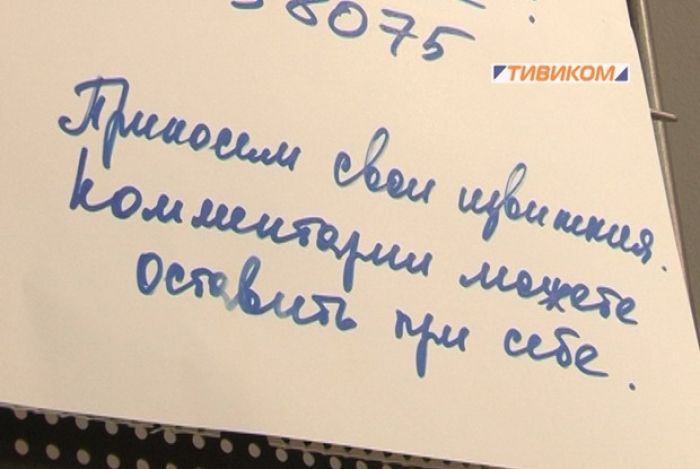 58075
ТИВИКОМ
Приносем свои извинния.
Комментарии можете
оставить при себе.